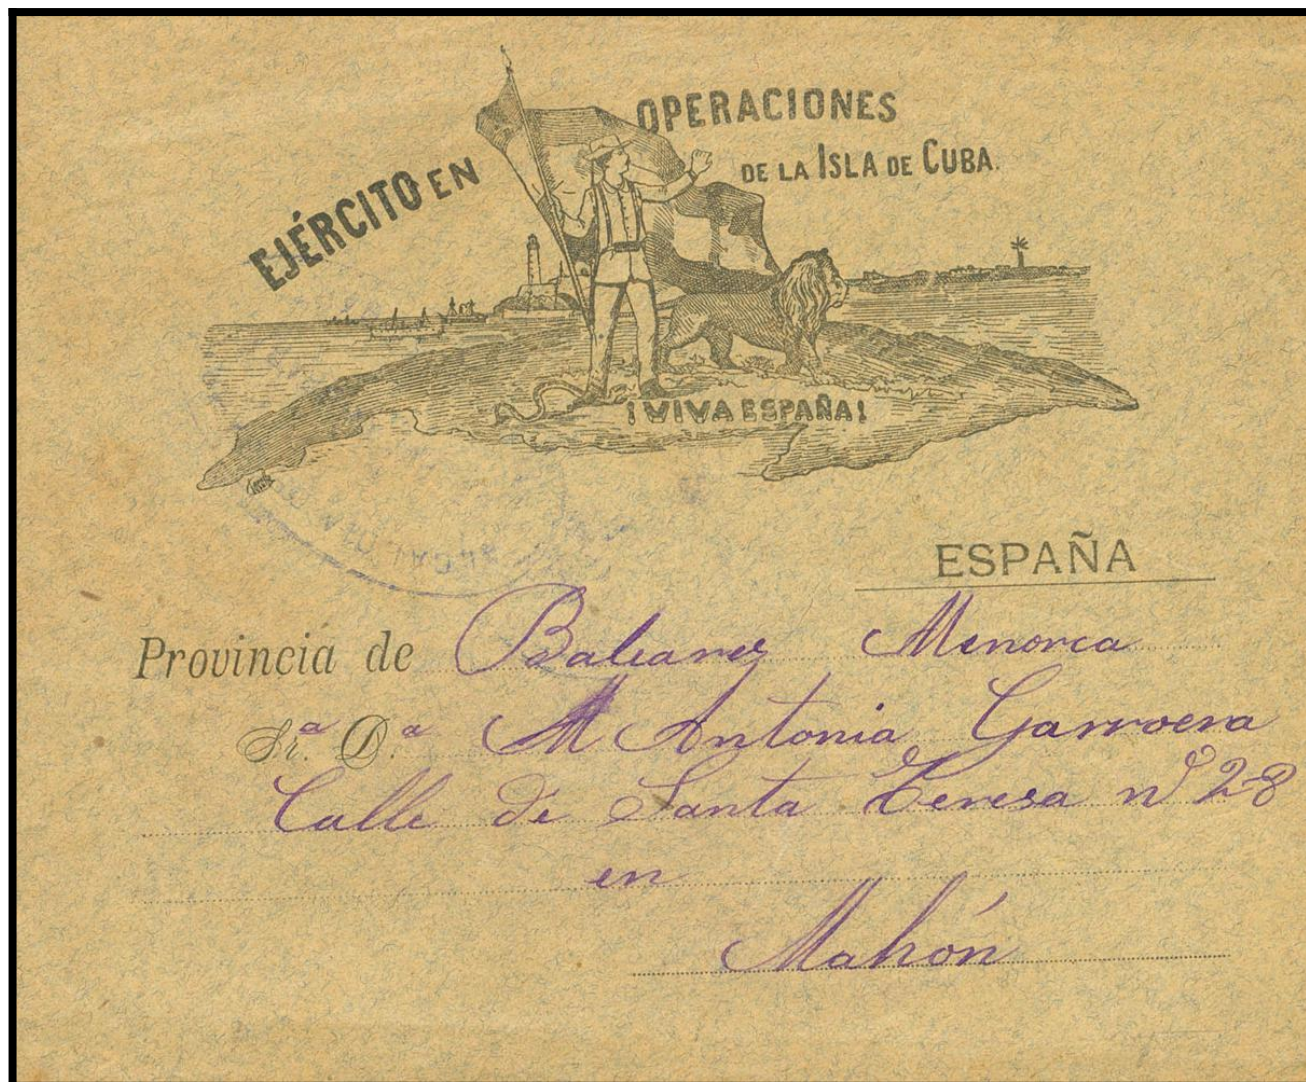 EJÉRCITO EN OPERACIONES
DE LA ISLA DE CUBA.
¡VIVA ESPAÑA!
ESPAÑA
Provincia de Baleares Menorca
Sr.ª D.ª M Antonia
Calle de Santa Teresa nº 28
en
Mahón